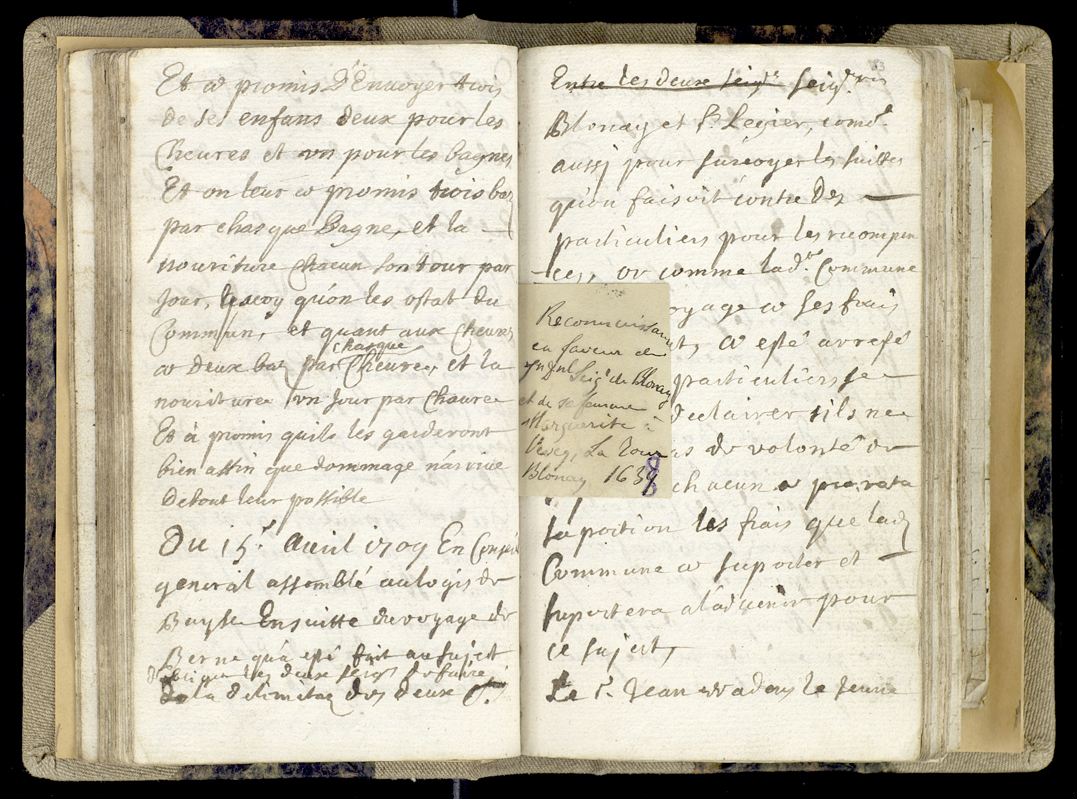 Et a promis D'Envoyer trois
de ses enfans deux pour les
Cheures et vn pour les bagnes
Et on leur a promis trois baz
par chasque Bagne, et la
nouriture Chacun son tour par
Jour, qu'on les ostat du
Commun, et quant aux Cheures
a deux baz par Cheure, et la
chasque
nouriture vn Jour par Chaure
Et à promis quils les garderont
bien affin que dommage n'arrive
de tout leur possible
Du 15e. Auril 1709 En Conseil
general assemblé au logis de
Ensuitte du voyage de
Berne qu'a esté fait au sujet
les deux seigrs
de la des deux
Entre les deux seigrs seigrs
Blonay et St. Legier, come
aussi pour les suittes
qu'on faisoit contre Des
particuliers pour les recompen
ces, or comme lade. Commune
oyage a ses frais
a esté arresté
particuliers se
declairer sils ne
as de volonté de
chacun a prorata
sa portion les frais que lade
Commune a suporter et
suportera à l'aduenir pour
ce sujet,
Le Sr. Jean le Jeune
Reconnaissance
en faveur de
Seigr de Blonay
et de sa femme
Marguerite à
Vevey, La Tour
Blonay, 1638